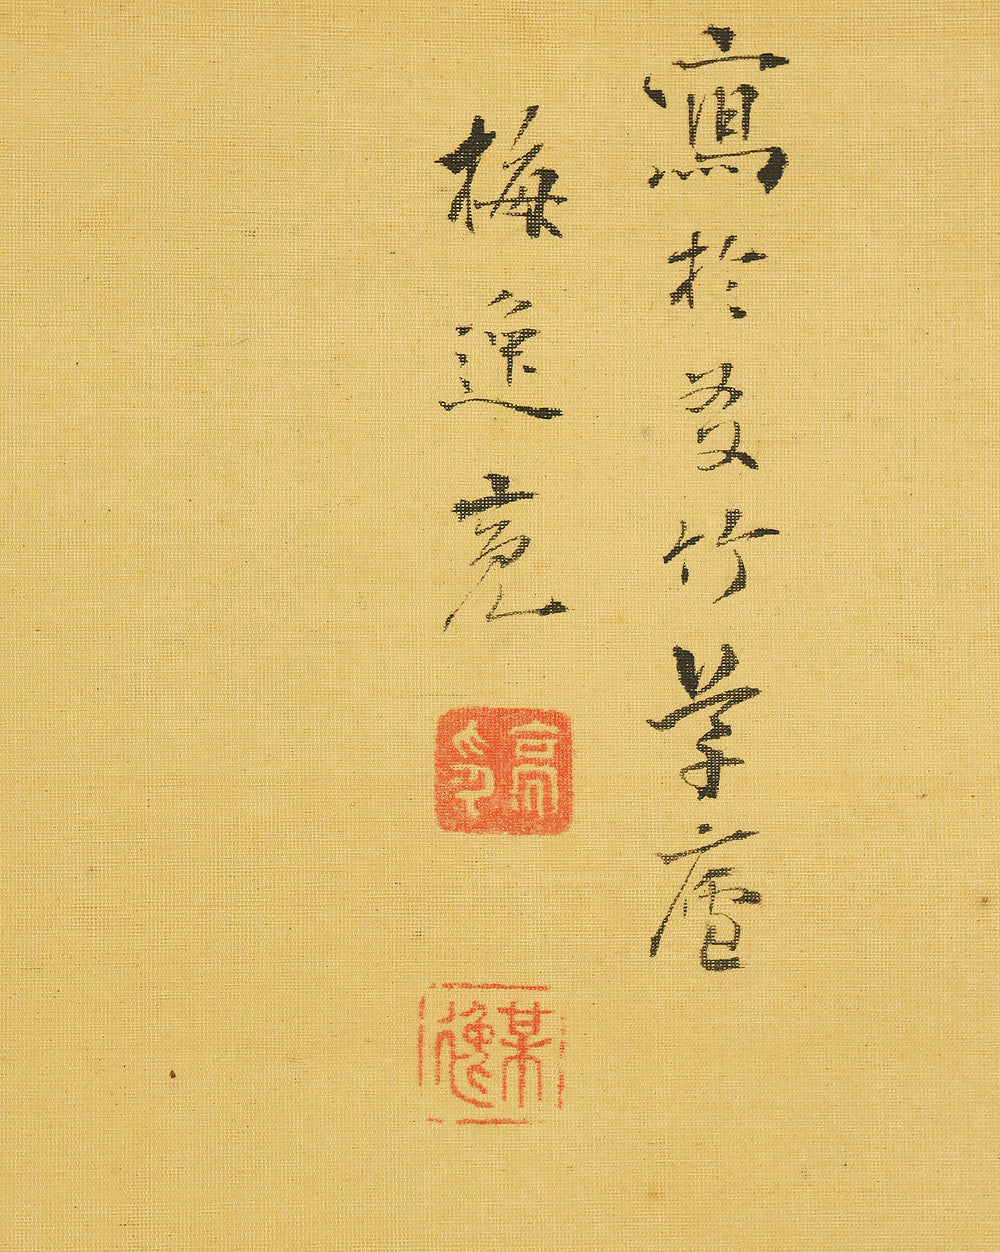 寫於友竹草廬
梅逸亮
亮印
某逸